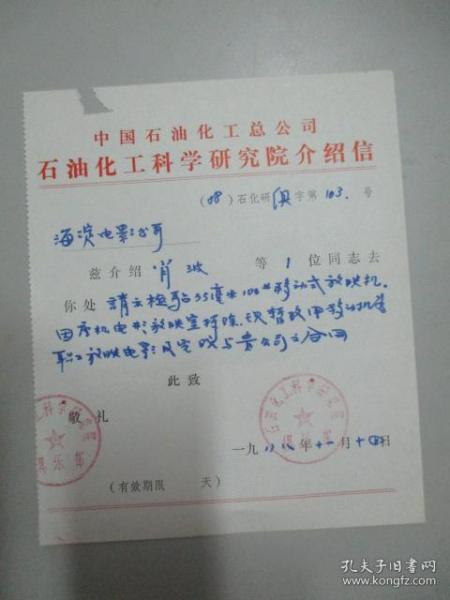 中国石油化工总公司
石油化工科学研究院介绍信
(88)石化研俱字第103.号
海淀电影公司
兹介绍 肖波 等 1 位同志去
你处 请去检验35毫米100#移动式放映机.
因原机电影放映室拆除,
职工放映电影
此致
敬礼
石油化工科学研究院
俱乐部
一九八八年十一月十四日
(有效期限 天)
孔夫子旧书网
www.kongfz.com